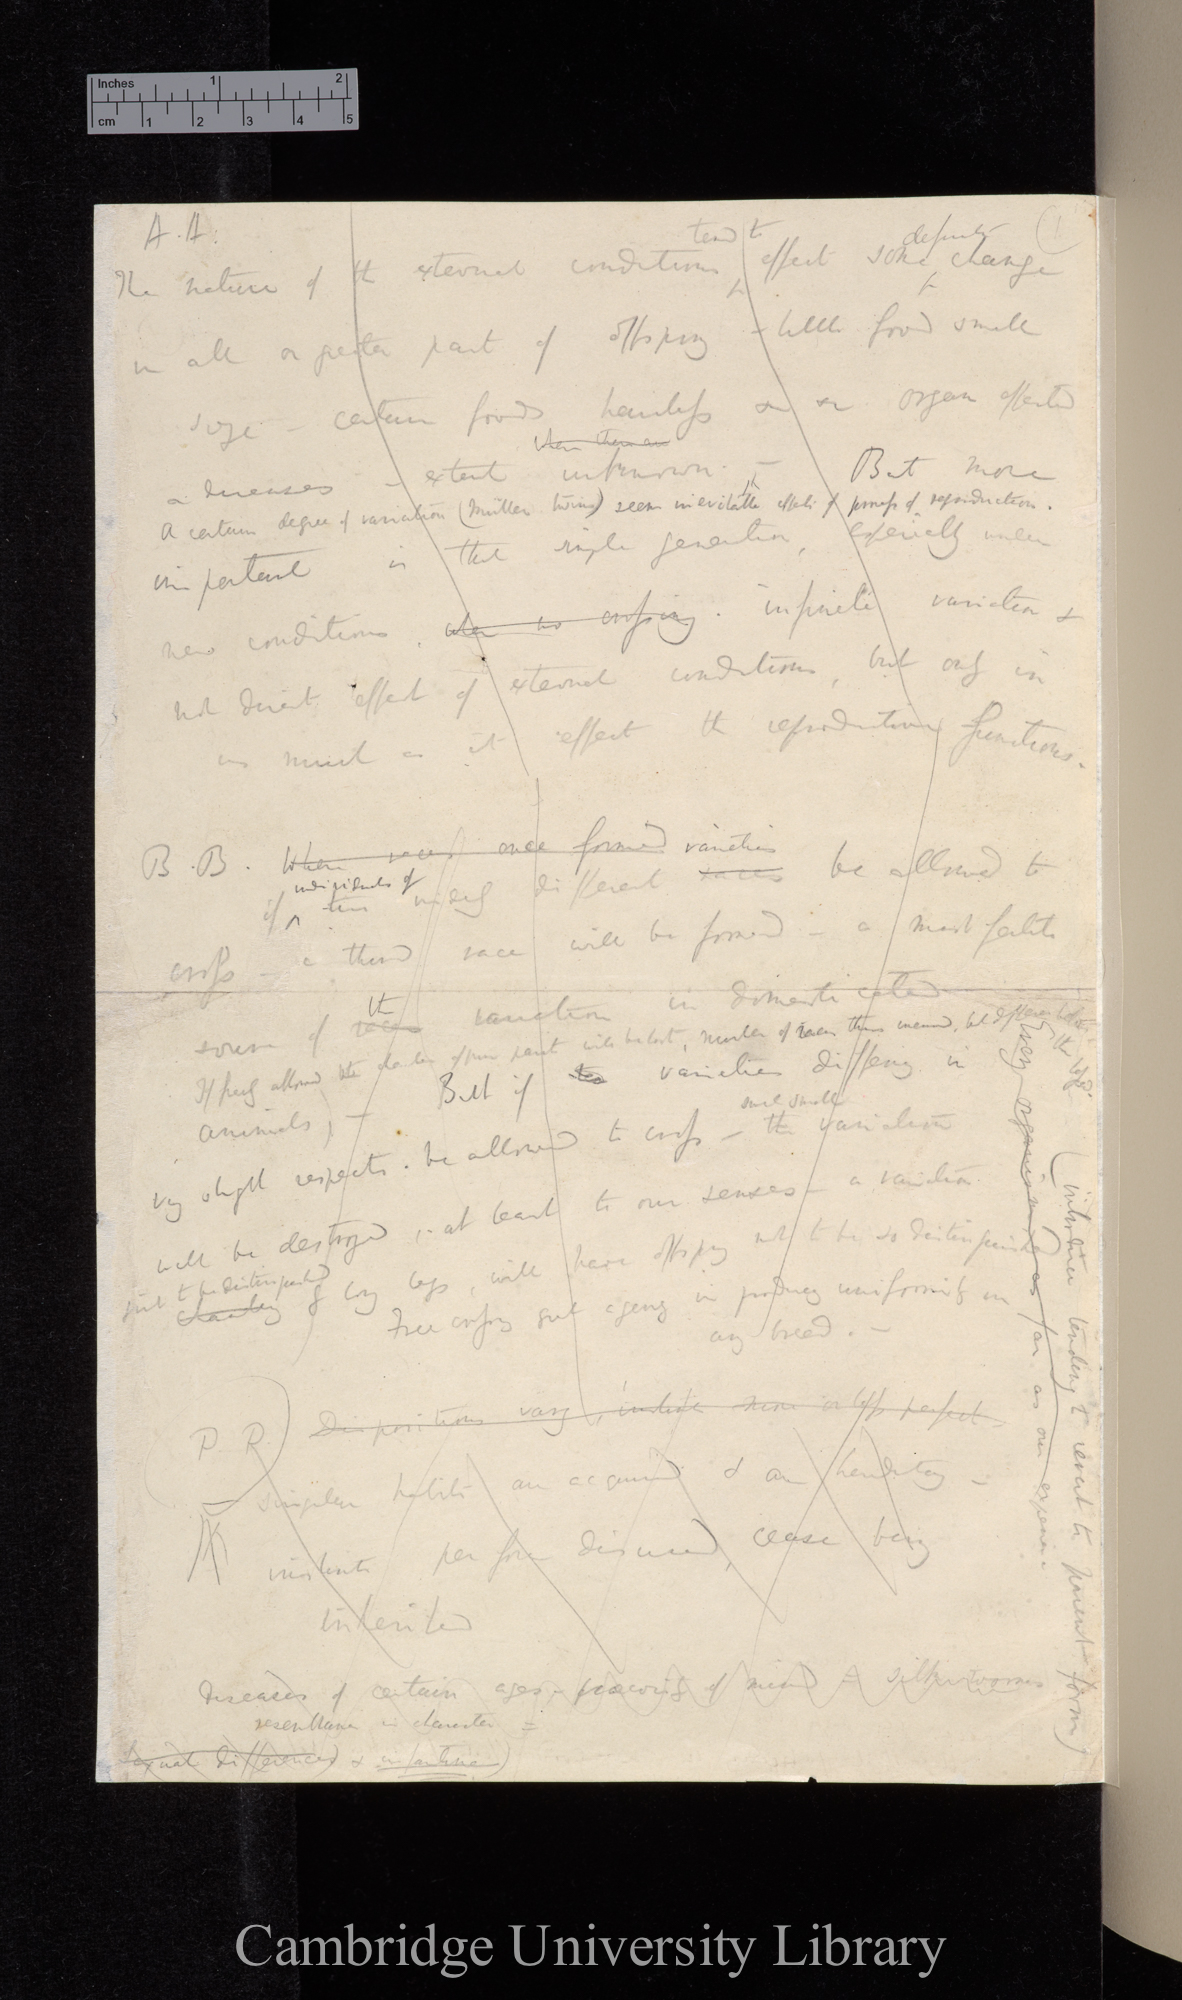 Inches 1 2
cm 1 2 3 4 5
A.A.
tend to definite
The nature of the external conditions effect some change
in all or greater part of offspring – little food small
size – certain foods harmless &c &c organ affected
when there are
& diseases – extent unknown. – But more
A certain degree of variation (Müller's twins) seem inevitable effects of process of reproduction.
important is that simple generation, especially under
new conditions, when no crossing. infinite variation &
not direct effect of external conditions, but only in
as much as it effect the reproductive functions.
B.B. When races once formed varieties
individuals of
if two widely different races be allowed to
cross – a third race will be formed – a most fertile
the
source of races variation in domesticated
If freely allowed, the character of pure parent will be lost, number of races thus
animals, – But if two varieties differing in
some small
very slight respects be allowed to cross – the variation
will be destroyed, – at least to our senses – a variation
just to be distinguished
clearly by long legs, will have offspring not to be so distinguished
Free crossing great agency in producing uniformity in
any breed. –
P.R. Dispositions vary, instinct more or less perfect –
singular habits are acquired & are hereditary –
instincts per from disused, cease being
inherited
Diseases of certain ages – of mind = silkworms
resemblance in character =
Sexual differences & infantine)
Every organism as far as our experience
(introduce tendency to revert to parent form)
Cambridge University Library